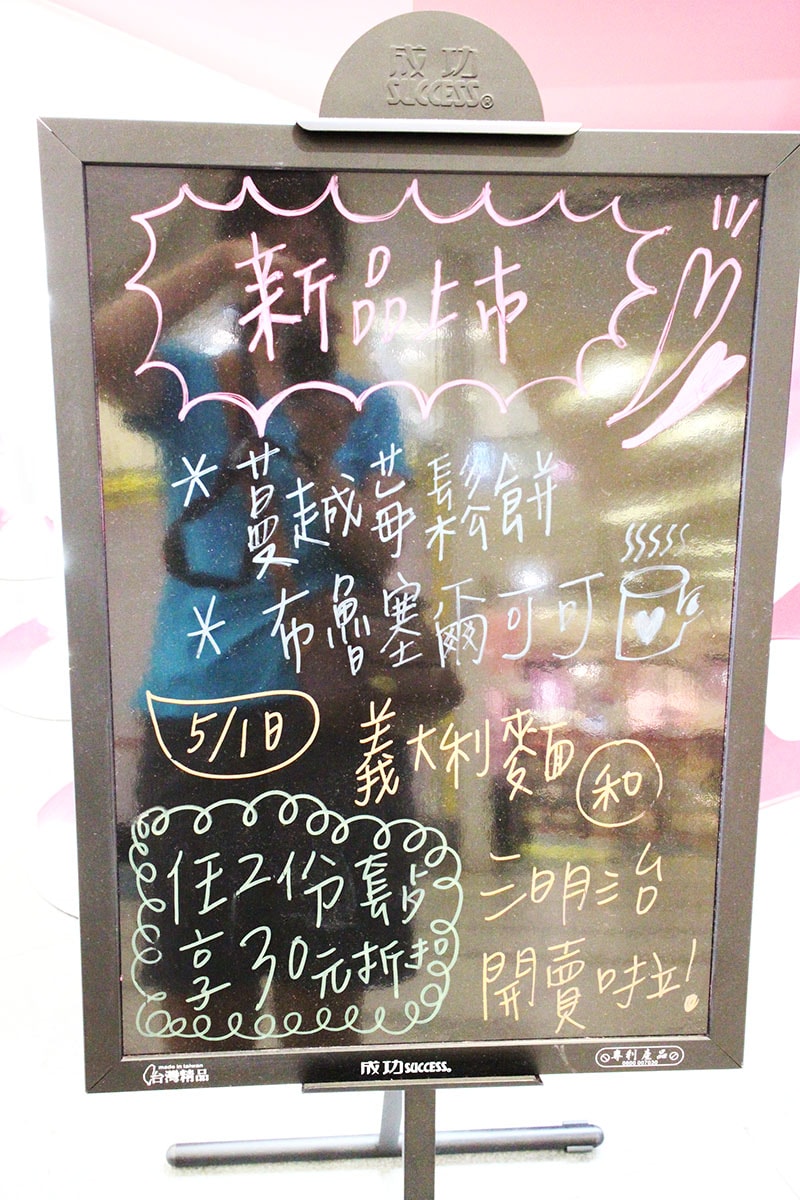 成功
SUCCESS®
新品上市
*蔓越莓鬆餅
*布魯塞爾可可
5/1日
義大利麵和
三明治
開賣啦!
任2份套餐
享30元折扣
made in taiwan
台灣精品
成功SUCCESS®
專利產品